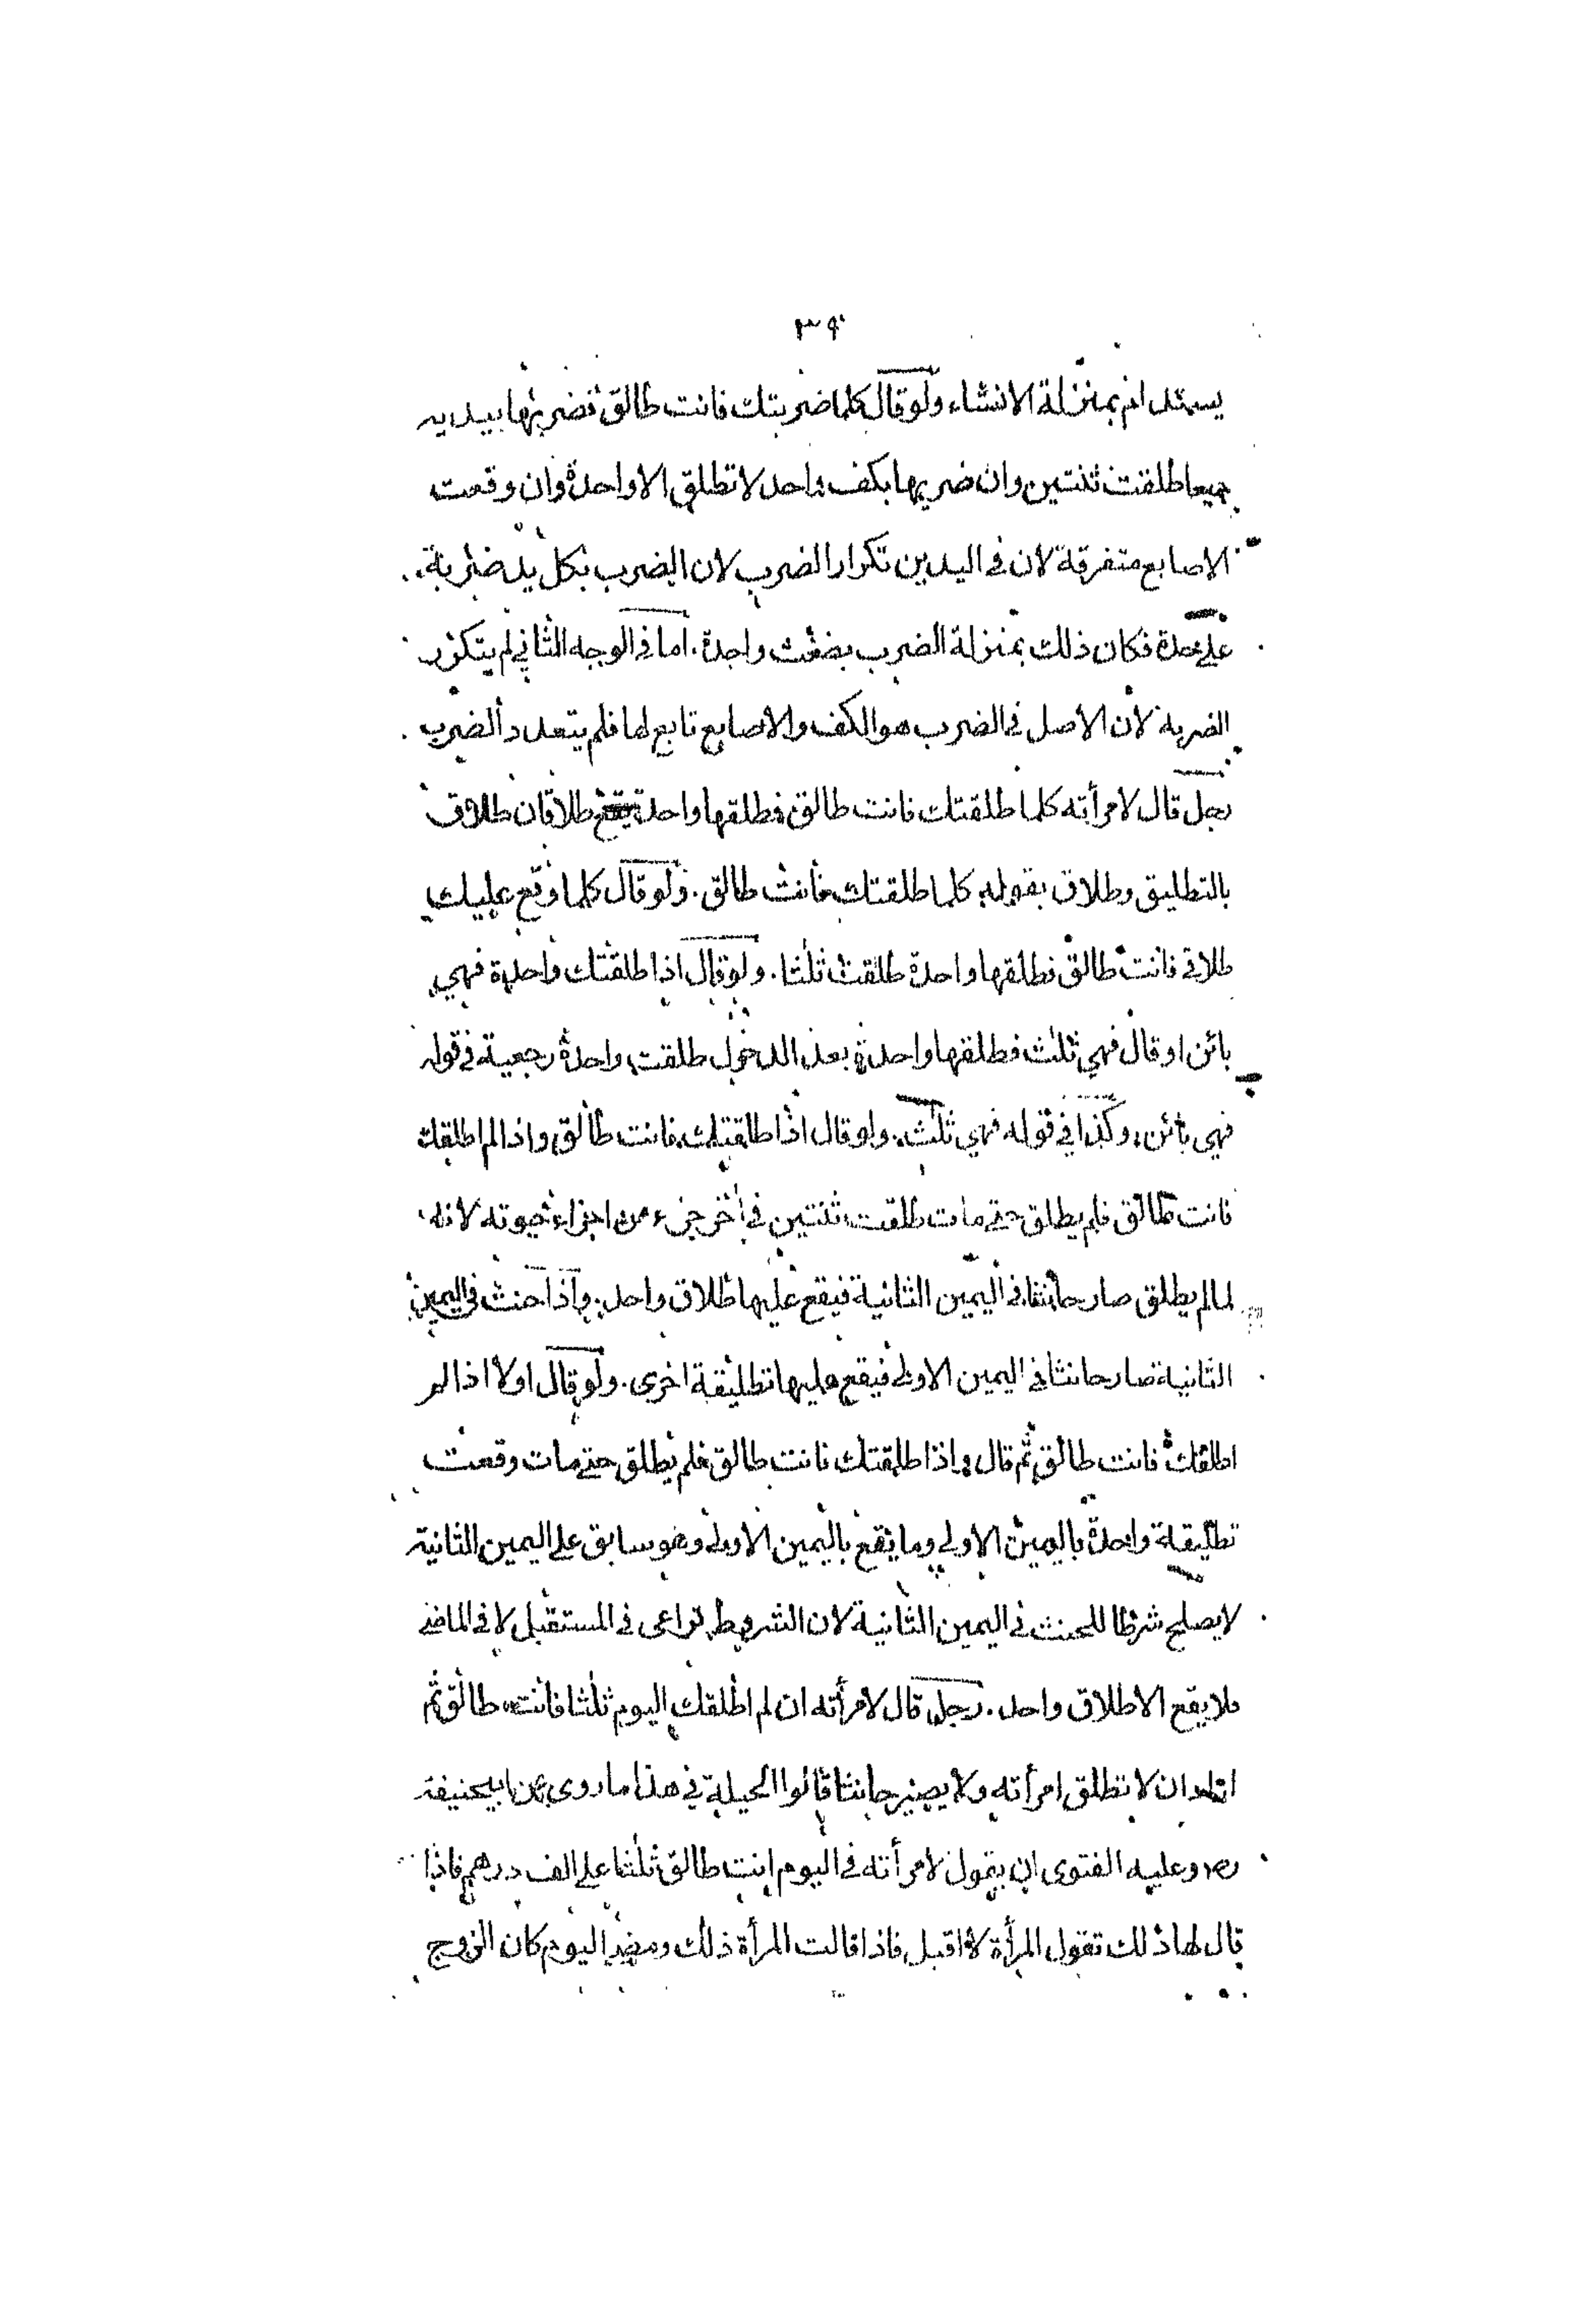 ٣٩
يستدام بمنزلة الانشاء ولو قال كلما ضربتك فانت طالق فضربها بيديه
جميعا طلقت ثنتين وان ضربها بكف واحد لا تطلق الا واحدة وان وقعت
الاصابع متفرقة لان في اليدين تكرار الضرب لان الضرب بكل يد ضربة
على حدة فكان ذلك بمنزلة الضرب بضغث واحدة . اما في الوجه الثاني لم يتكرر
الضربة لان الاصل في الضرب هو الكف والاصابع تابع لها فلم يتعدد الضرب
رجل قال لامرأته كلما طلقتك فانت طالق فطلقها واحدة يقع طلاقان طلاق
بالتطليق وطلاق بقوله كلما طلقتك فانت طالق . ولو قال كلما وقع عليك
طلاقي فانت طالق فطلقها واحدة طلقت ثلثا . ولو قال اذا طلقتك واحدة فهي
بائن او قال فهي ثلث فطلقها واحدة بعد الدخول طلقت واحدة رجعية في قوله
فهي بائن وكذا في قوله فهي ثلث . ولو قال اذا طلقتك فانت طالق واذا لم اطلقك
فانت طالق فلم يطلق حتى مات طلقت ثنتين في أخر جزء من اجزاء حيوته لانه
لما لم يطلق صار حانثا في اليمين الثانية فيقع عليها طلاق واحد . واذا حنث في اليمين
الثانية صار حانثا في اليمين الاولى فيقع عليها تطليقة اخرى . ولو قال اولا اذا لم
اطلقك فانت طالق ثم قال واذا طلقتك فانت طالق فلم يطلق حتى مات وقعت
تطليقة واحدة باليمين الاولى وما يقع باليمين الاولى وهو سابق على اليمين الثانية
لا يصلح شرطا للحنث في اليمين الثانية لان الشروط تراعى في المستقبل لا في الماضي
فلا يقع الا طلاق واحد . رجل قال لامرأته ان لم اطلقك اليوم ثلثا فانت طالق ثم
اراد ان لا تطلق امرأته ولا يصير حانثا قالوا الحيلة في هذا ما روى عن ابيحنيفة
رحه وعليه الفتوى ان يقول لامرأته في اليوم انت طالق ثلثا على الف درهم فاذا
قال لها ذلك تقول المرأة لا اقبل فاذا قالت المرأة ذلك ومضى اليوم كان الزوج